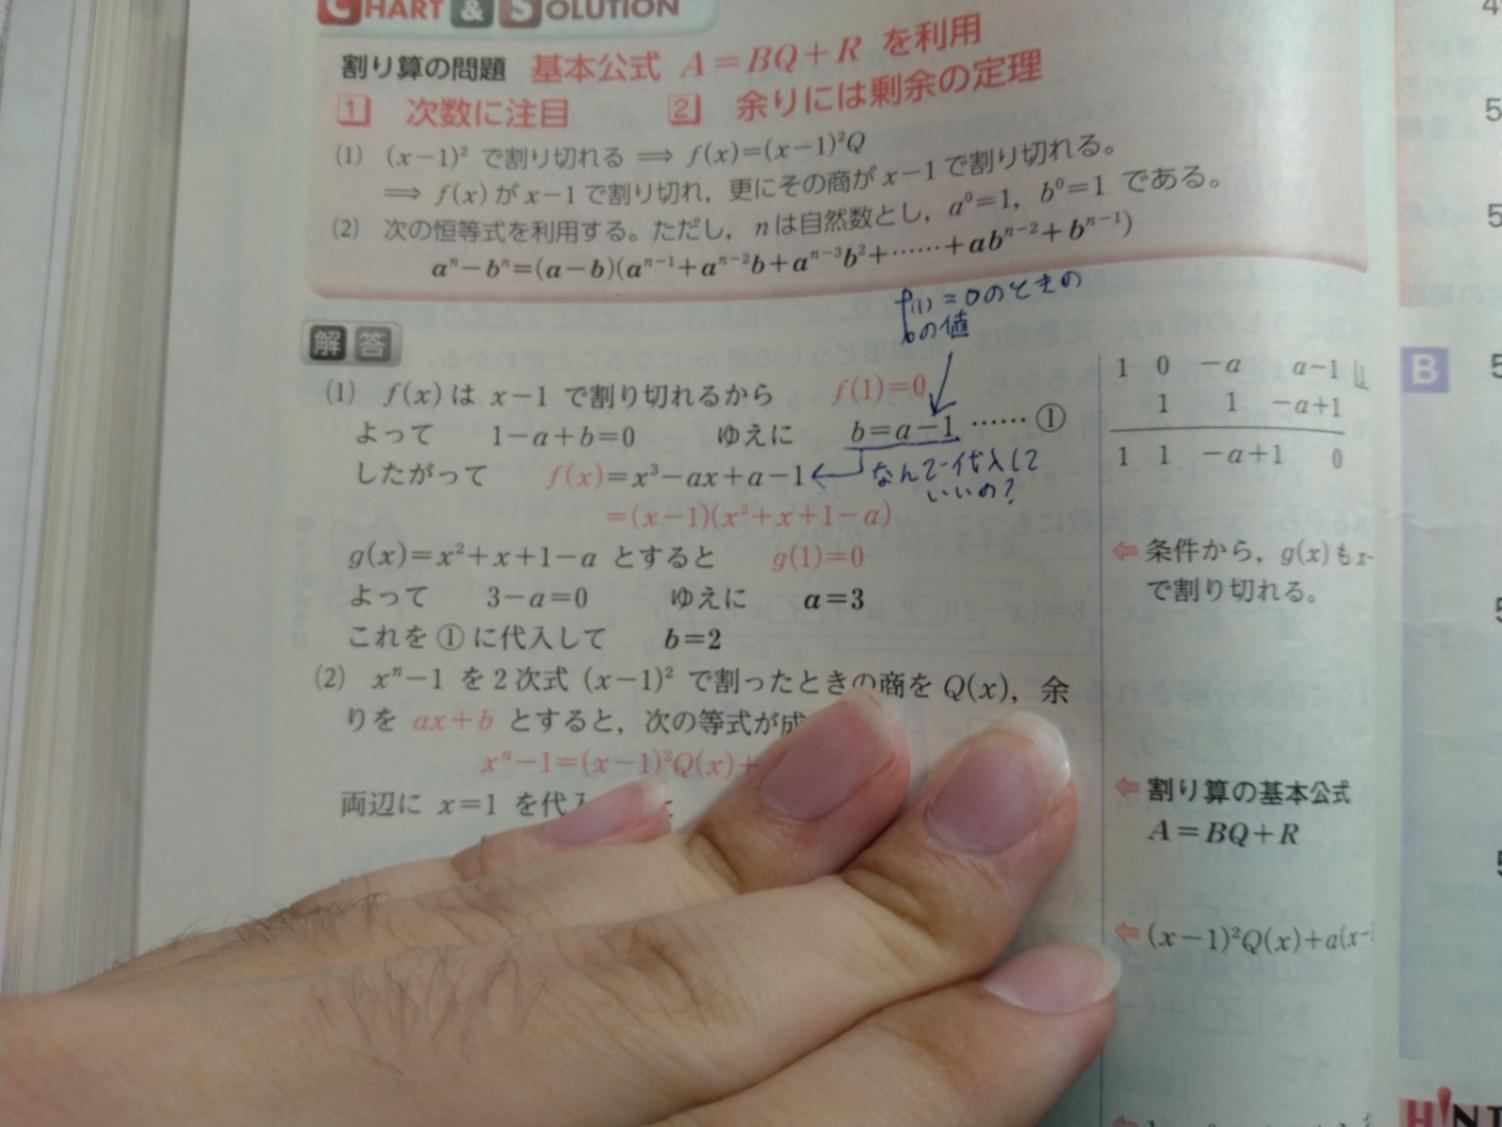 CHART & SOLUTION
割り算の問題 基本公式 A=BQ+R を利用
1 次数に注目 2 余りには剰余の定理
(1) (x−1)² で割り切れる ⟹ f(x)=(x−1)²Q
⟹ f(x) が x−1 で割り切れ，更にその商が x−1 で割り切れる。
(2) 次の恒等式を利用する。ただし，n は自然数とし，a⁰=1，b⁰=1 である。
aⁿ−bⁿ=(a−b)(aⁿ⁻¹+aⁿ⁻²b+aⁿ⁻³b²+……+abⁿ⁻²+bⁿ⁻¹)
f(1)=0のときの
bの値
解答
(1) f(x) は x−1 で割り切れるから f(1)=0
よって 1−a+b=0 ゆえに b=a−1 ……①
したがって f(x)=x³−ax+a−1
なんで代入して
いいの？
=(x−1)(x²+x+1−a)
g(x)=x²+x+1−a とすると g(1)=0
よって 3−a=0 ゆえに a=3
これを ① に代入して b=2
(2) xⁿ−1 を2次式 (x−1)² で割ったときの商を Q(x)，余
りを ax+b とすると，次の等式が成
xⁿ−1=(x−1)²Q(x)+
両辺に x=1 を代
1 0 −a a−1
1 1 −a+1
1 1 −a+1 0
⇦ 条件から，g(x) も x−
で割り切れる。
⇦ 割り算の基本公式
A=BQ+R
⇦ (x−1)²Q(x)+a(x−
B
HINT